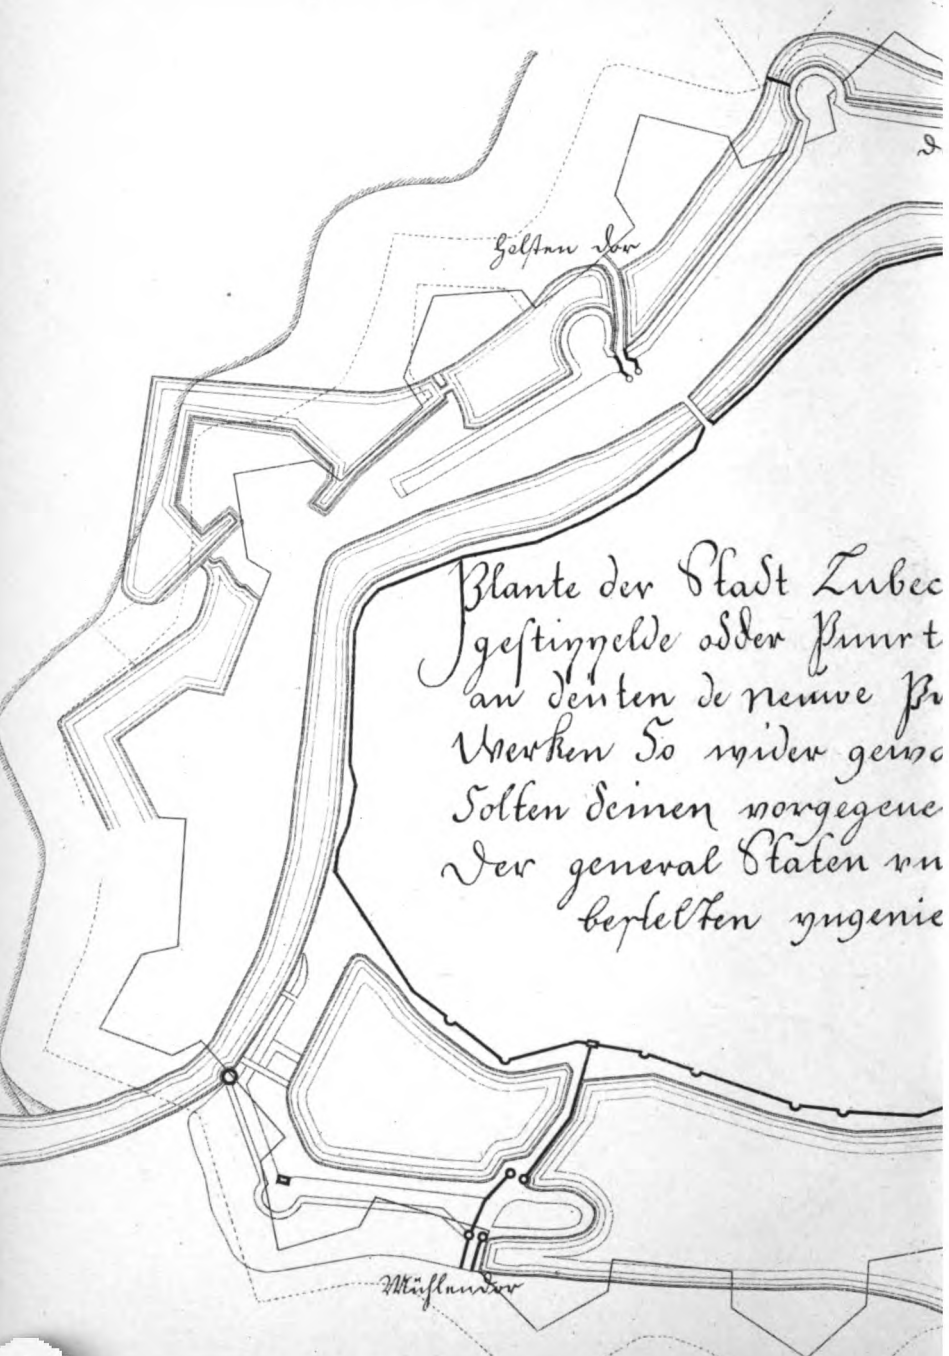 Holsten dor
Plante der Stadt Lubec
gestippelde odder Punct
an deuten de neuwe
Werken So wider gewo
Solten Seinen vorgegene
Der general Staten
bestelten yngenie
Mühlendor